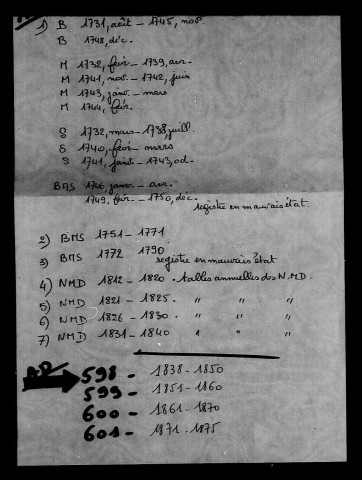 1) B 1731, août - 1745, nov.
B 1748, déc.
M 1732, févr - 1739, avr.
M 1741, nov. - 1742, juin
M 1743, janv. - mars
M 1744, févr.
S 1732, mars - 1738, juill.
S 1740, févr - mars
S 1741, janv. - 1743, oct.
BMS 1746, janv. - avr.
1749, févr. - 1750, déc.
registre en mauvais état.
2) BMS 1751 - 1771
3) BMS 1772 1790
registre en mauvais état
4) NMD 1812 - 1820 . tables annuelles des N.M.D.
5) NMD 1821 - 1825. " " "
6) NMD 1826 - 1830 . " " "
7) NMD 1831 - 1840 " " "
598 - 1838 - 1850
599 - 1851 - 1860
600 - 1861 - 1870
601 - 1871 - 1875